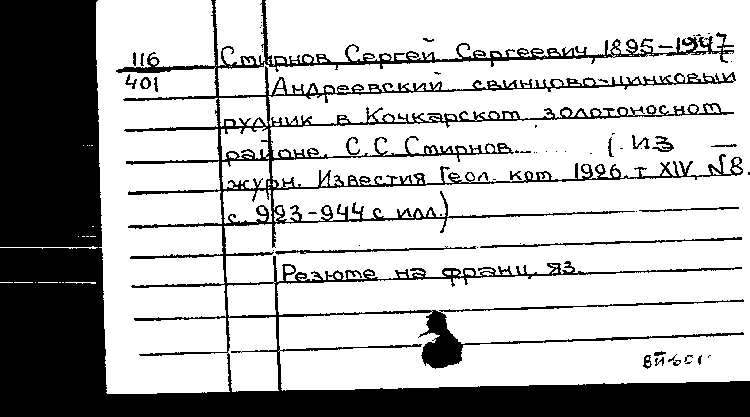 116 Смирнов, Сергей Сергеевич, 1895-1947
401 Андреевский свинцово-цинковый
рудник в Кочкарском золотоносном
районе. С.С. Смирнов. (Из
журн. Известия Геол. ком. 1926. т XLV, №8.
с. 923-944 с илл.)
Резюме на франц. яз.